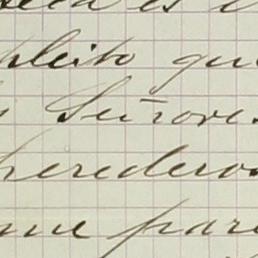 es
pleito que
Señores
herederos
que para